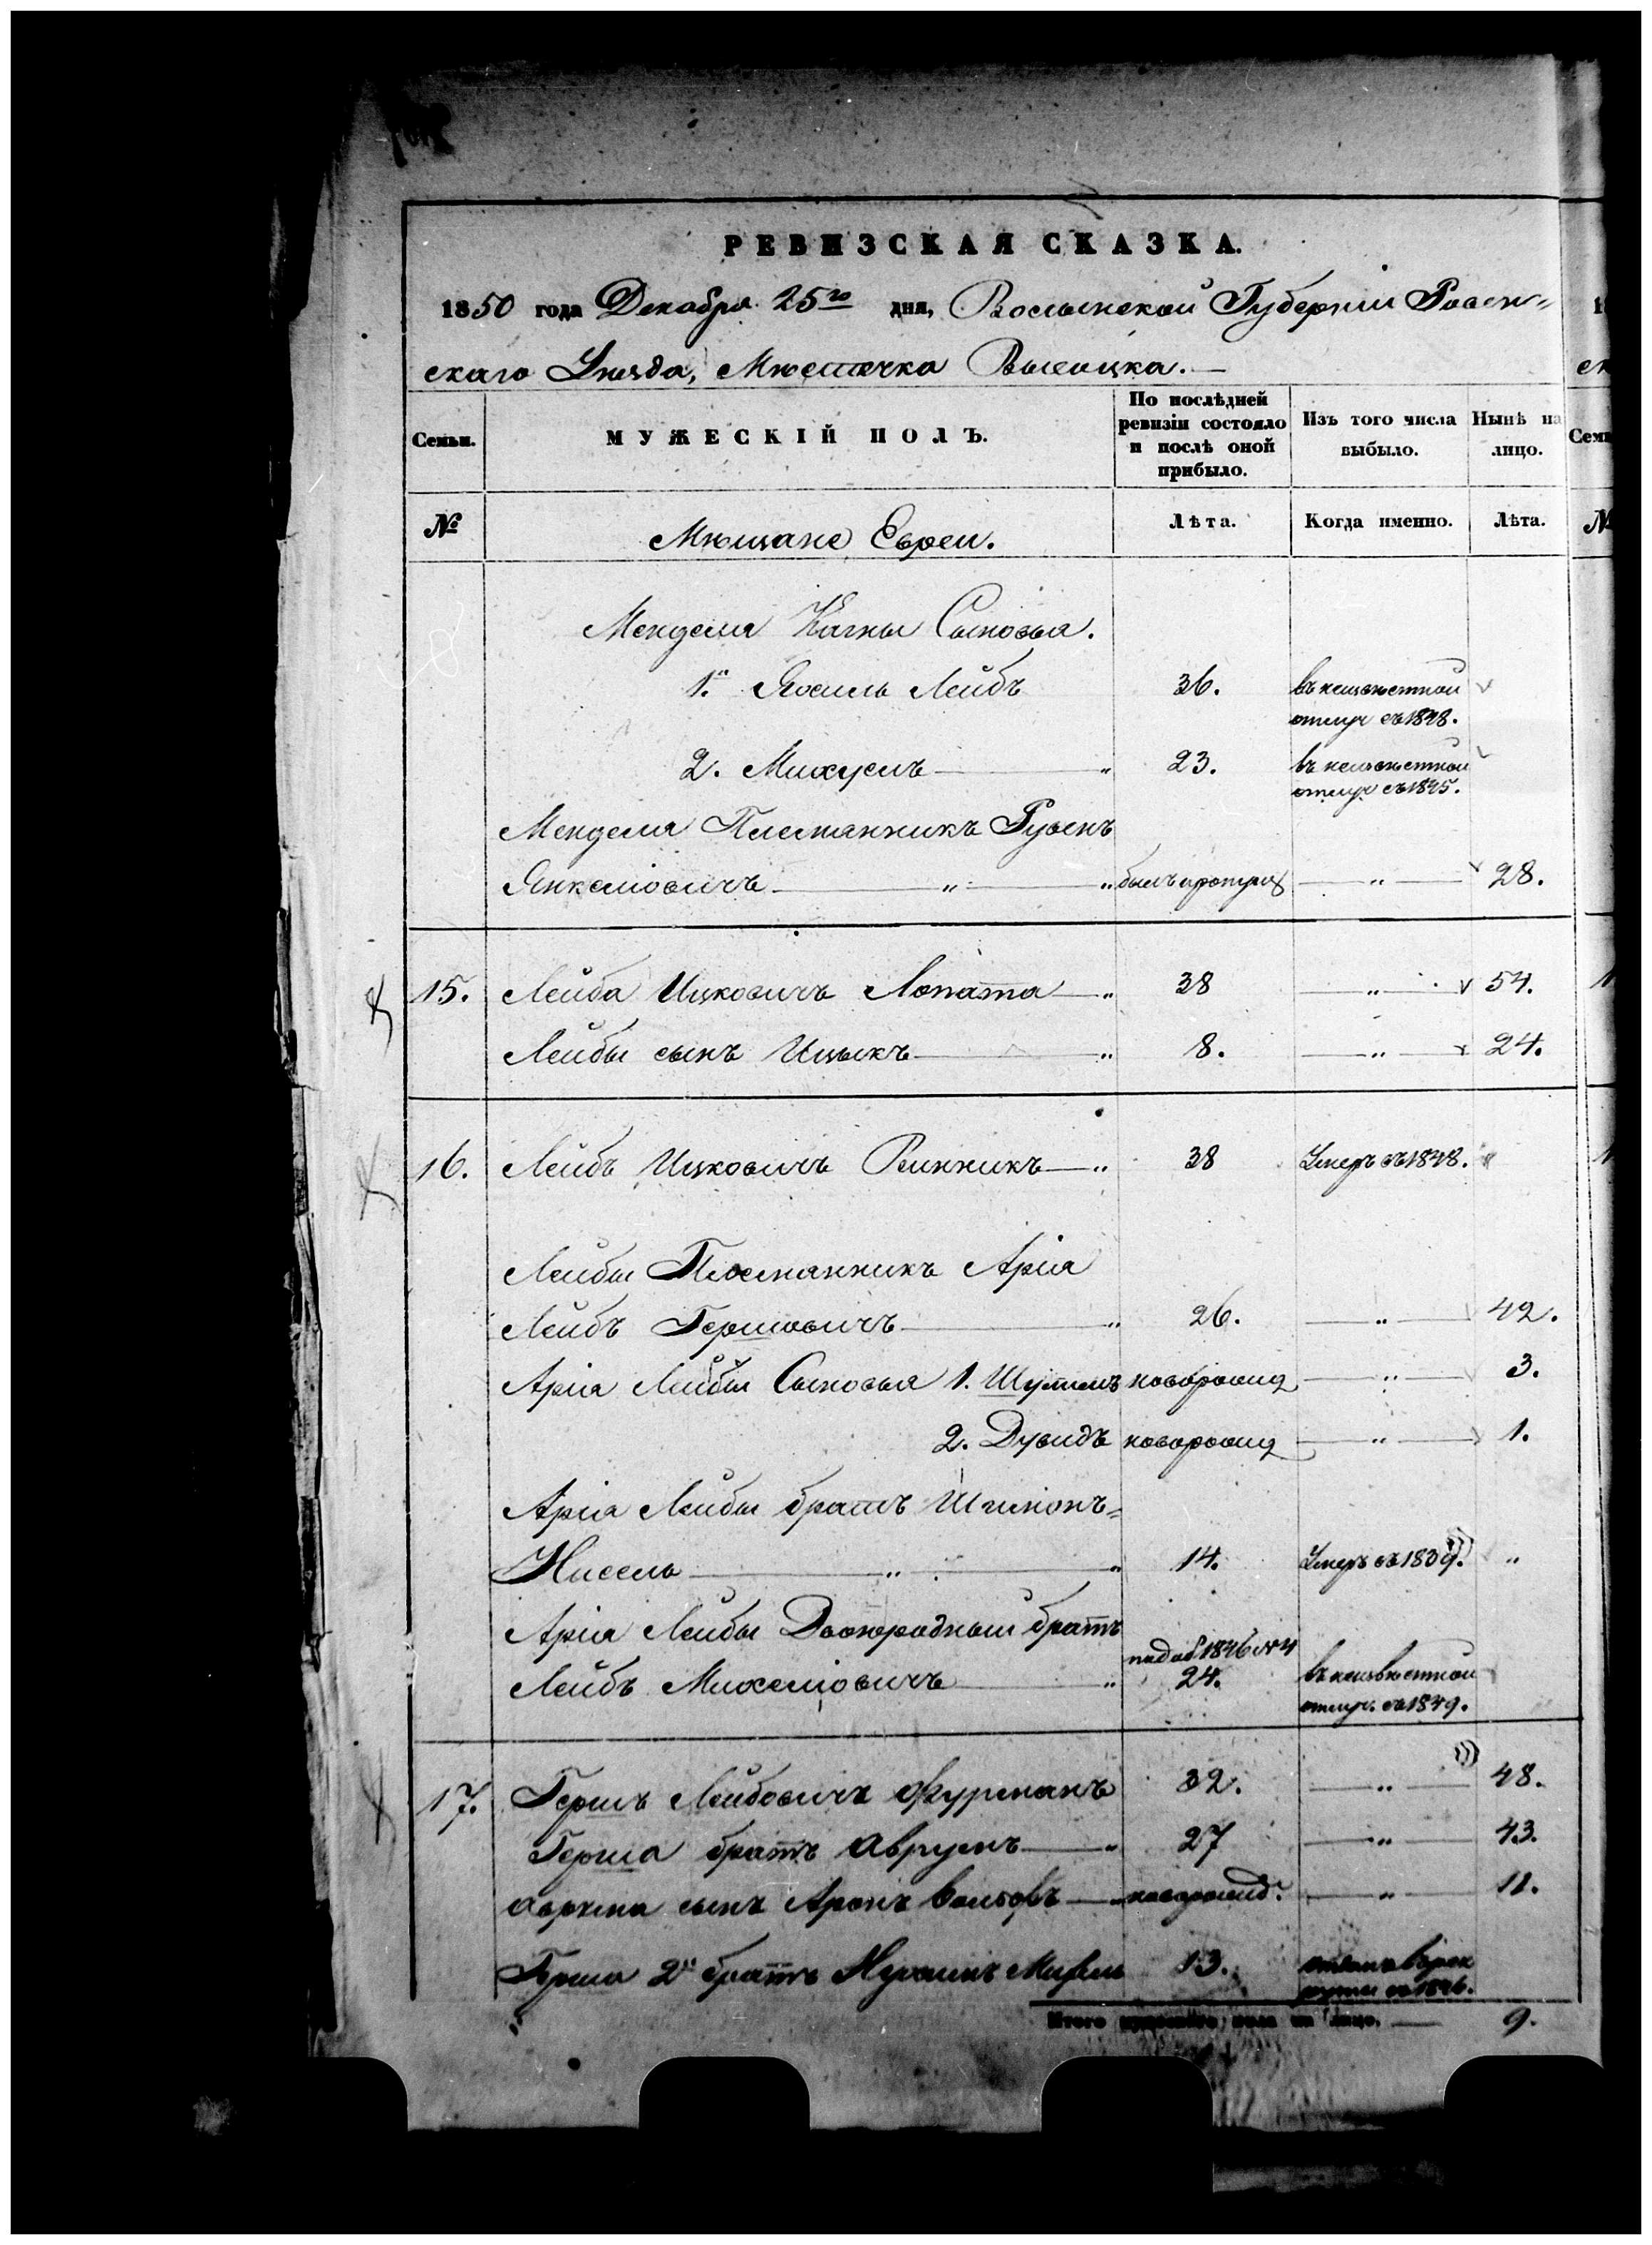 РЕВИЗСКАЯ СКАЗКА.
1850 года Декабря 25го дня, Волынской Губерніи Ровен-
скаго Уѣзда, Мѣстечка Высоцка.
Семьи.
МУЖЕСКІЙ ПОЛЪ.
По послѣдней ревизіи состояло и послѣ оной прибыло.
Изъ того числа выбыло.
Нынѣ на лицо.
№
Мѣщане Евреи.
Лѣта.
Когда именно.
Лѣта.
Менделя Кагны Сыновья.
1.й Иосель Лейбъ 36. въ неизвѣстной
отлуч съ 1848.
2. Михуель " 23. въ неизвѣстной
отлуч съ 1845.
Менделя Племянникъ Рувенъ
Янкеліовичъ " " былъ пропущ " 28.
15. Лейба Ицковичъ Лопата " 38 " 54.
Лейбы сынъ Ицыкъ " 8. " 24.
16. Лейбъ Ицковичъ Винникъ " 38 Умеръ съ 1848. "
Лейбы Племянникъ Арія
Лейбъ Гершовичъ " 26. " 42.
Арія Лейбы Сыновья 1. Шулимъ новорожд " 3.
2. Дувидъ новорожд " 1.
Арія Лейбы братъ Шимонъ-
Нисель " " 14. Умеръ съ 1839. "
Арія Лейбы Двоюродный братъ
Лейбъ Михеліовичъ " 24. въ неизвѣстной
отлуч. съ 1849.
17. Гершъ Лейбовичъ Фурманъ 32. " 48.
Герша братъ Аврумъ " 27 " 43.
Аврума сынъ Аронъ Вольфъ " новорожд. " 11.
Герша 2й братъ Нухимъ 13. отданъ въ рек
руты съ 1846.
Итого мужескаго пола на лицо. 9.